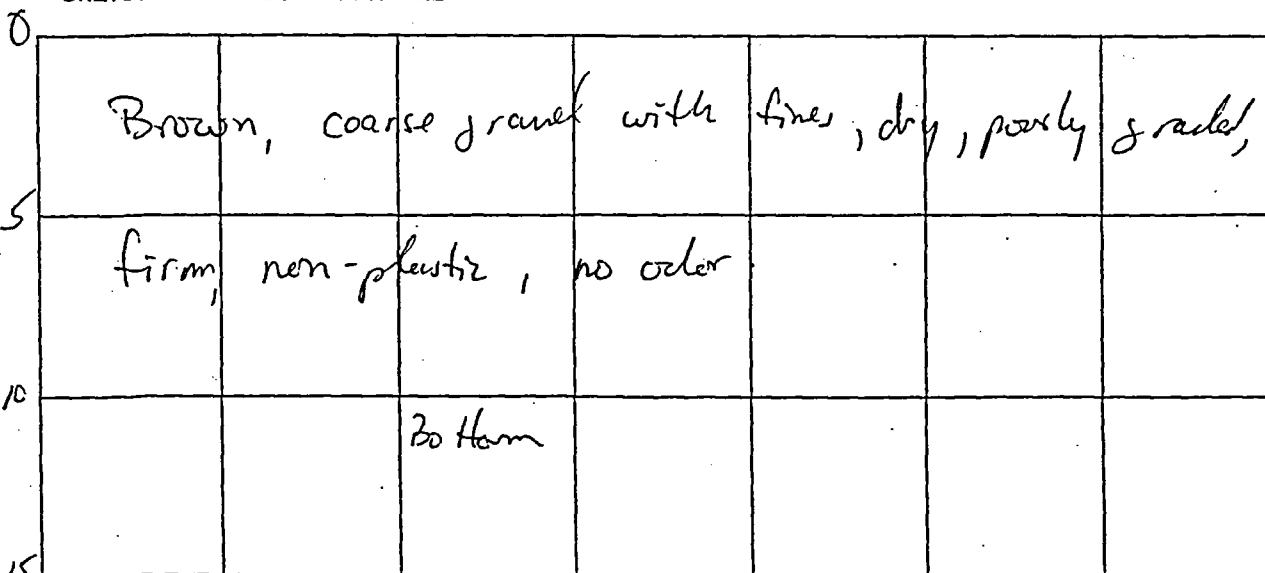 0
Brown, coarse gravel with fines, dry, poorly graded,
5
firm, non-plastic, no odor
10
Bottom
15